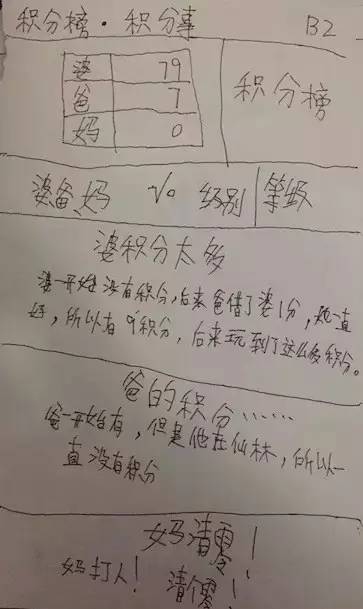 积分榜·积分事 B2
婆 79
爸 7
妈 0
积分榜
婆爸妈 V0 级别 等级
婆积分太多
婆一开始没有积分,后来爸借了婆1分,她一直
好,所以有 积分,后来玩到了这么多积分。
爸的积分……
爸一开始有,但是他在仙林,所以一
直没有积分
妈清零!
妈打人! 清零!